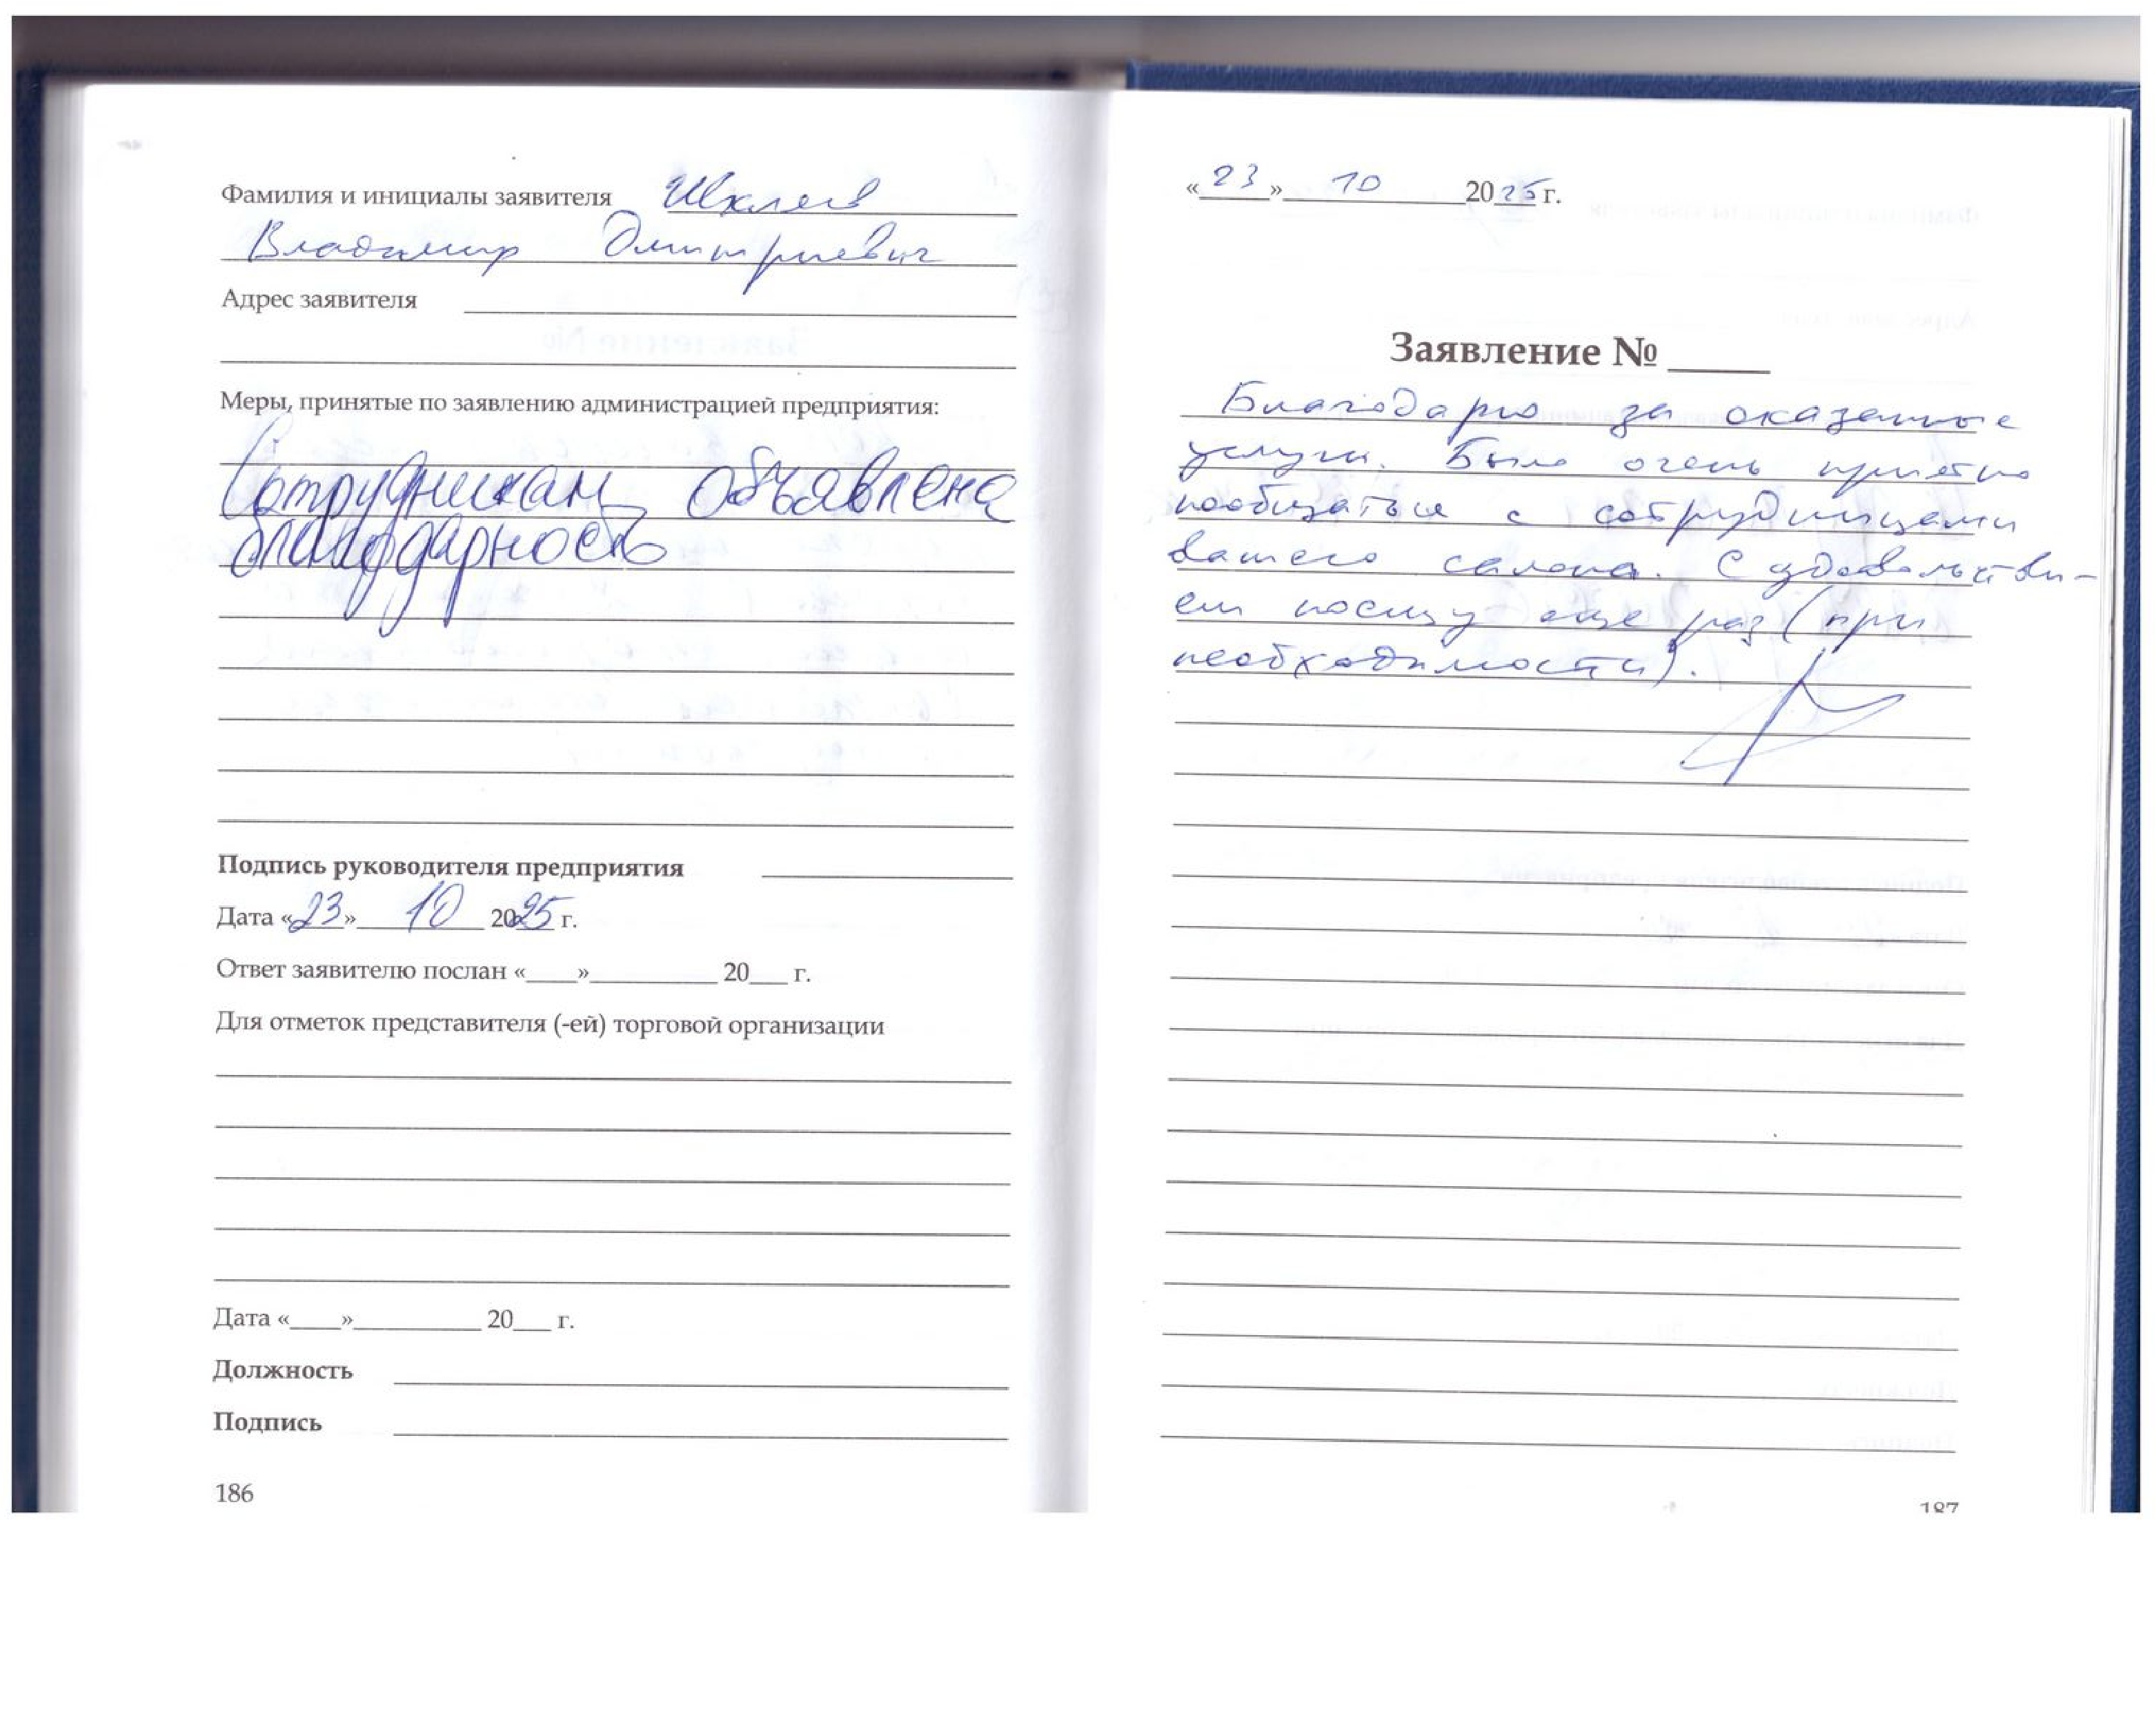 Фамилия и инициалы заявителя
Владимир Дмитриевич
Адрес заявителя
Меры, принятые по заявлению администрацией предприятия:
Сотрудникам объявлена
благодарность
Подпись руководителя предприятия
Дата «23» 10 2025 г.
Ответ заявителю послан «____»__________ 20___ г.
Для отметок представителя (-ей) торговой организации
Дата «____»__________ 20___ г.
Должность
Подпись
186
«23» 10 2025 г.
Заявление № _____
Благодарю за оказанные
услуги. Было очень приятно
пообщаться с сотрудницами
вашего салона. С удовольстви-
ем посещу еще раз (при
необходимости).
187